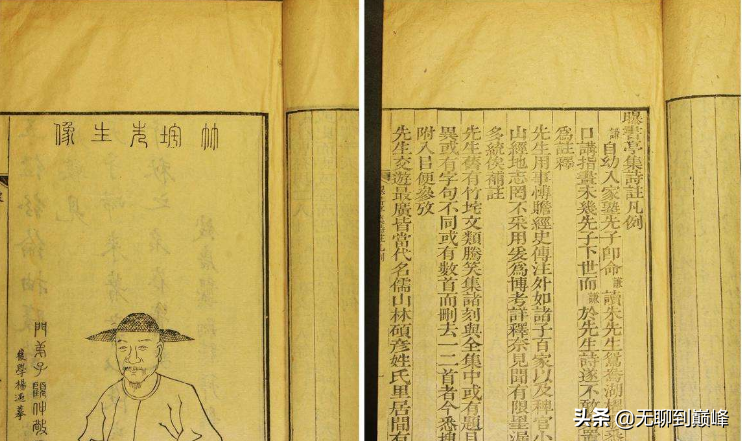 竹垞先生像
門弟子顧仲
曝書亭集詩註凡例
謙自幼入家塾先子卽命謙讀朱先生鴛鴦湖櫂
口講指畫未幾先子下世而謙於先生詩遂不敢
爲註釋
先生用事博贍經史傳注外如諸子百家以及稗官小
山經地志罔不采用爰爲博考詳釋奈見聞有限望
多統俟補註
先生舊有竹垞文類騰笑集諸刻與全集中或有題目
異或有字句不同或有數首而刪去一二首者今悉搜
附入目便參攷
先生交遊最廣皆當代名儒山林碩彥姓氏里居間有
头条 @无聊到巅峰